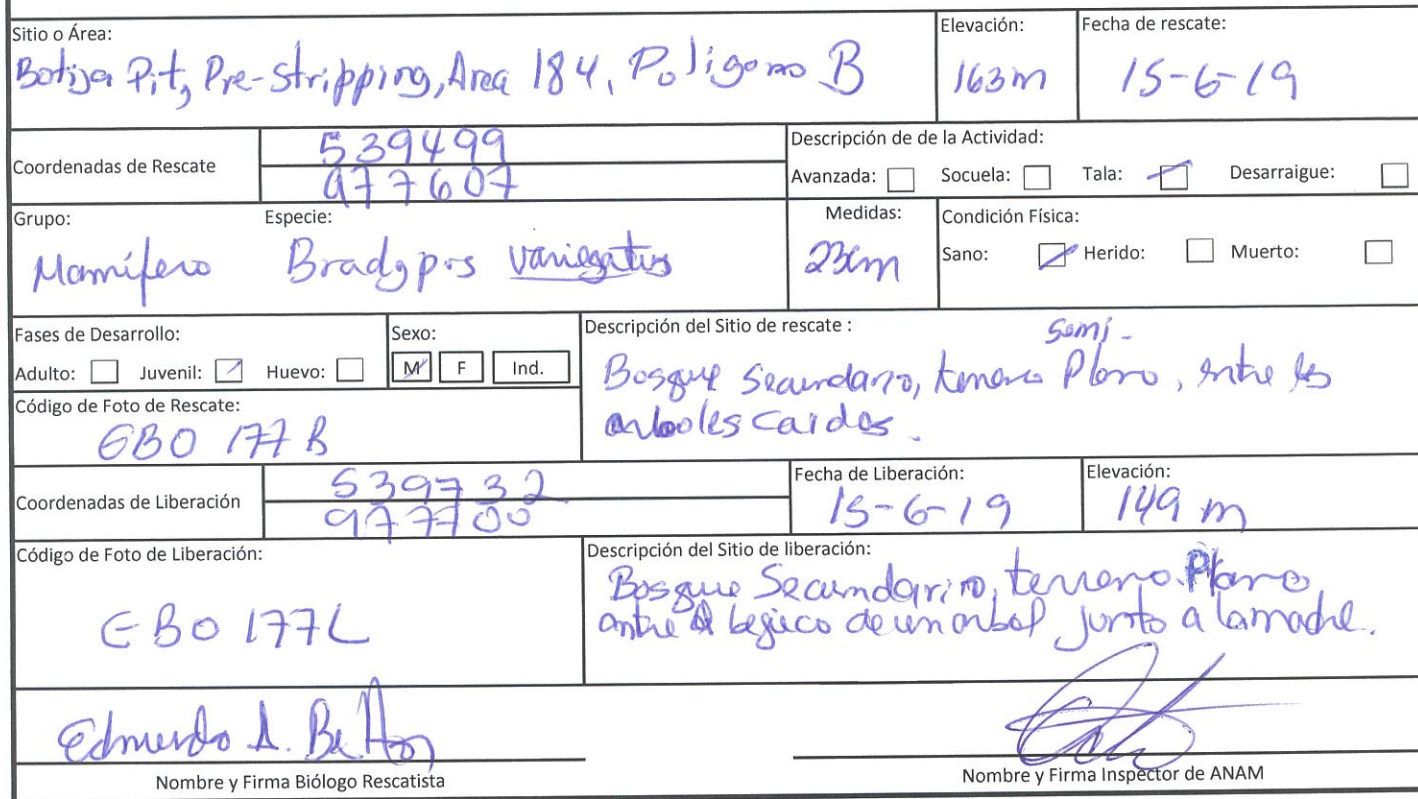 Sitio o Área:
Botija Pit, Pre-stripping, Area 184, Poligono B
Elevación:
163m
Fecha de rescate:
15-6-19
Coordenadas de Rescate
539499
977607
Descripción de de la Actividad:
Avanzada: Socuela: Tala: Desarraigue:
Grupo:
Mamífero
Especie:
Bradypus variegatus
Medidas:
23cm
Condición Física:
Sano: Herido: Muerto:
Fases de Desarrollo:
Adulto: Juvenil: Huevo:
Sexo:
M F Ind.
Descripción del Sitio de rescate :
semi-
Bosque Secundario, terreno Plano, entre los
arboles caidos.
Código de Foto de Rescate:
EBO 177 R
Coordenadas de Liberación
539732
977700
Fecha de Liberación:
15-6-19
Elevación:
149 m
Código de Foto de Liberación:
EBO 177L
Descripción del Sitio de liberación:
Bosque Secundario, terreno Plano
entre bejuco de un arbol junto a la madre.
Edmundo A.
Nombre y Firma Biólogo Rescatista
Nombre y Firma Inspector de ANAM